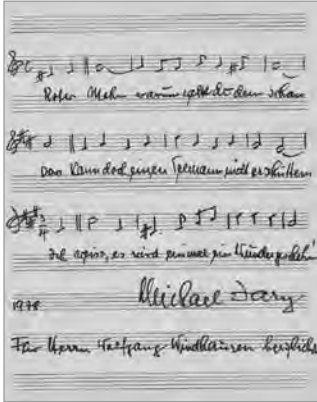 Roter Mohn warum welkst du denn schon
Das kann doch einen Seemann nicht erschüttern
Ich weiss, es wird einmal ein Wunder geschehn
1978 Michael Jary
Für Herrn Wolfgang Windhausen herzlichst